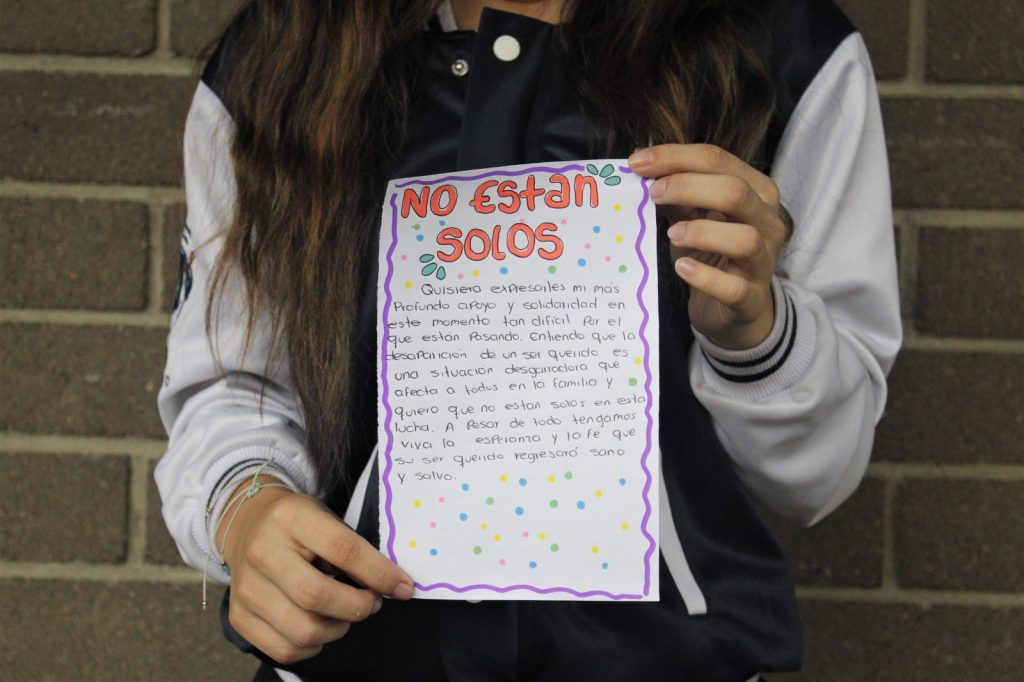 NO Estan
SOLOS
Quisiera expresarles mi más
Profundo apoyo y solidaridad en
este momento tan difícil Por el
que están Pasando. Entiendo que la
desaparición de un ser querido es
una situación desgarradora que
afecta a todos en la familia y
quiero que no estan solos en esta
lucha. A Pesar de todo tengamos
viva la esperanza y la fe que
su ser querido regresará sano
y salvo.